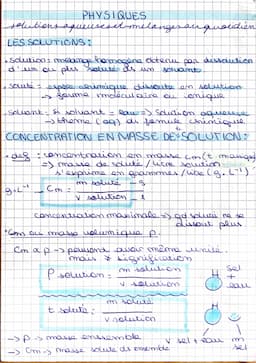 PHYSIQUES
solutions aqueuses et mélanges au quotidien
LES SOLUTIONS :
• Solution : mélange homogène obtenu par dissolution
d'un ou plsr soluté ds un solvant
• soluté : espèce chimique dissoute en solution
→ forme moléculaire ou ionique
• Solvant : si solvant = eau => solution aqueuse
→ (aq) formule chimique
CONCENTRATION EN MASSE DE SOLUTION :
• def : concentration en masse Cm (t mango)
=> masse de soluté / litre solution
s'exprime en grammes / litre (g.L⁻¹)
g.L⁻¹ ← Cm = m soluté → g
V solution l
concentration maximale => qd soluté ne se
dissout plus
*Cm ou masse volumique ρ.
Cm ≠ ρ → peuvent avoir même unité.
mais ≠ signification
ρ solution = m solution
V solution
t soluté = m soluté
V solution
sel
eau
→ ρ → masse ensemble
→ Cm → masse soluté ds ensemble
V sel + eau
m sel